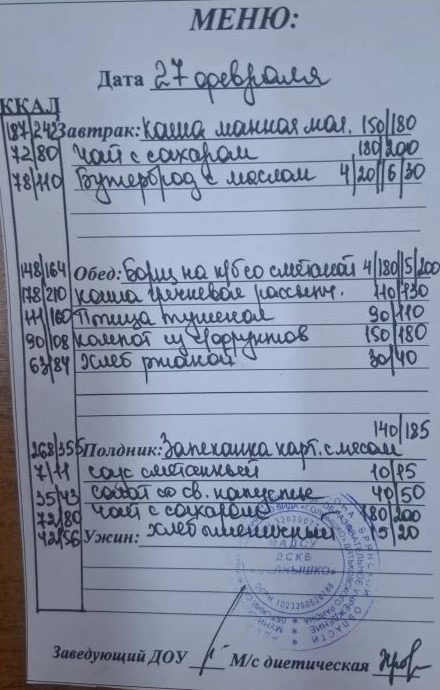 МЕНЮ:
Дата 27 февраля
ККАЛ
187/242 Завтрак: Каша манная мол. 150/180
72/80 Чай с сахаром 180/200
78/110 Бутерброд с маслом 4/20//6/30
148/164 Обед: Борщ на к/б со сметаной 4/180/5/200
178/210 Каша гречневая рассыпч. 110/130
111/160 Птица тушеная 90/110
90/108 Компот из с/фруктов 150/180
63/84 Хлеб ржаной 30/40
140/185
268/355 Полдник: Запеканка карт. с мясом
7/11 Соус сметанный 10/15
35/43 Салат со св. капусты 40/50
72/80 Чай с сахаром 180/200
42/56 Ужин: Хлеб пшеничный 15/20
Заведующий ДОУ М/с диетическая